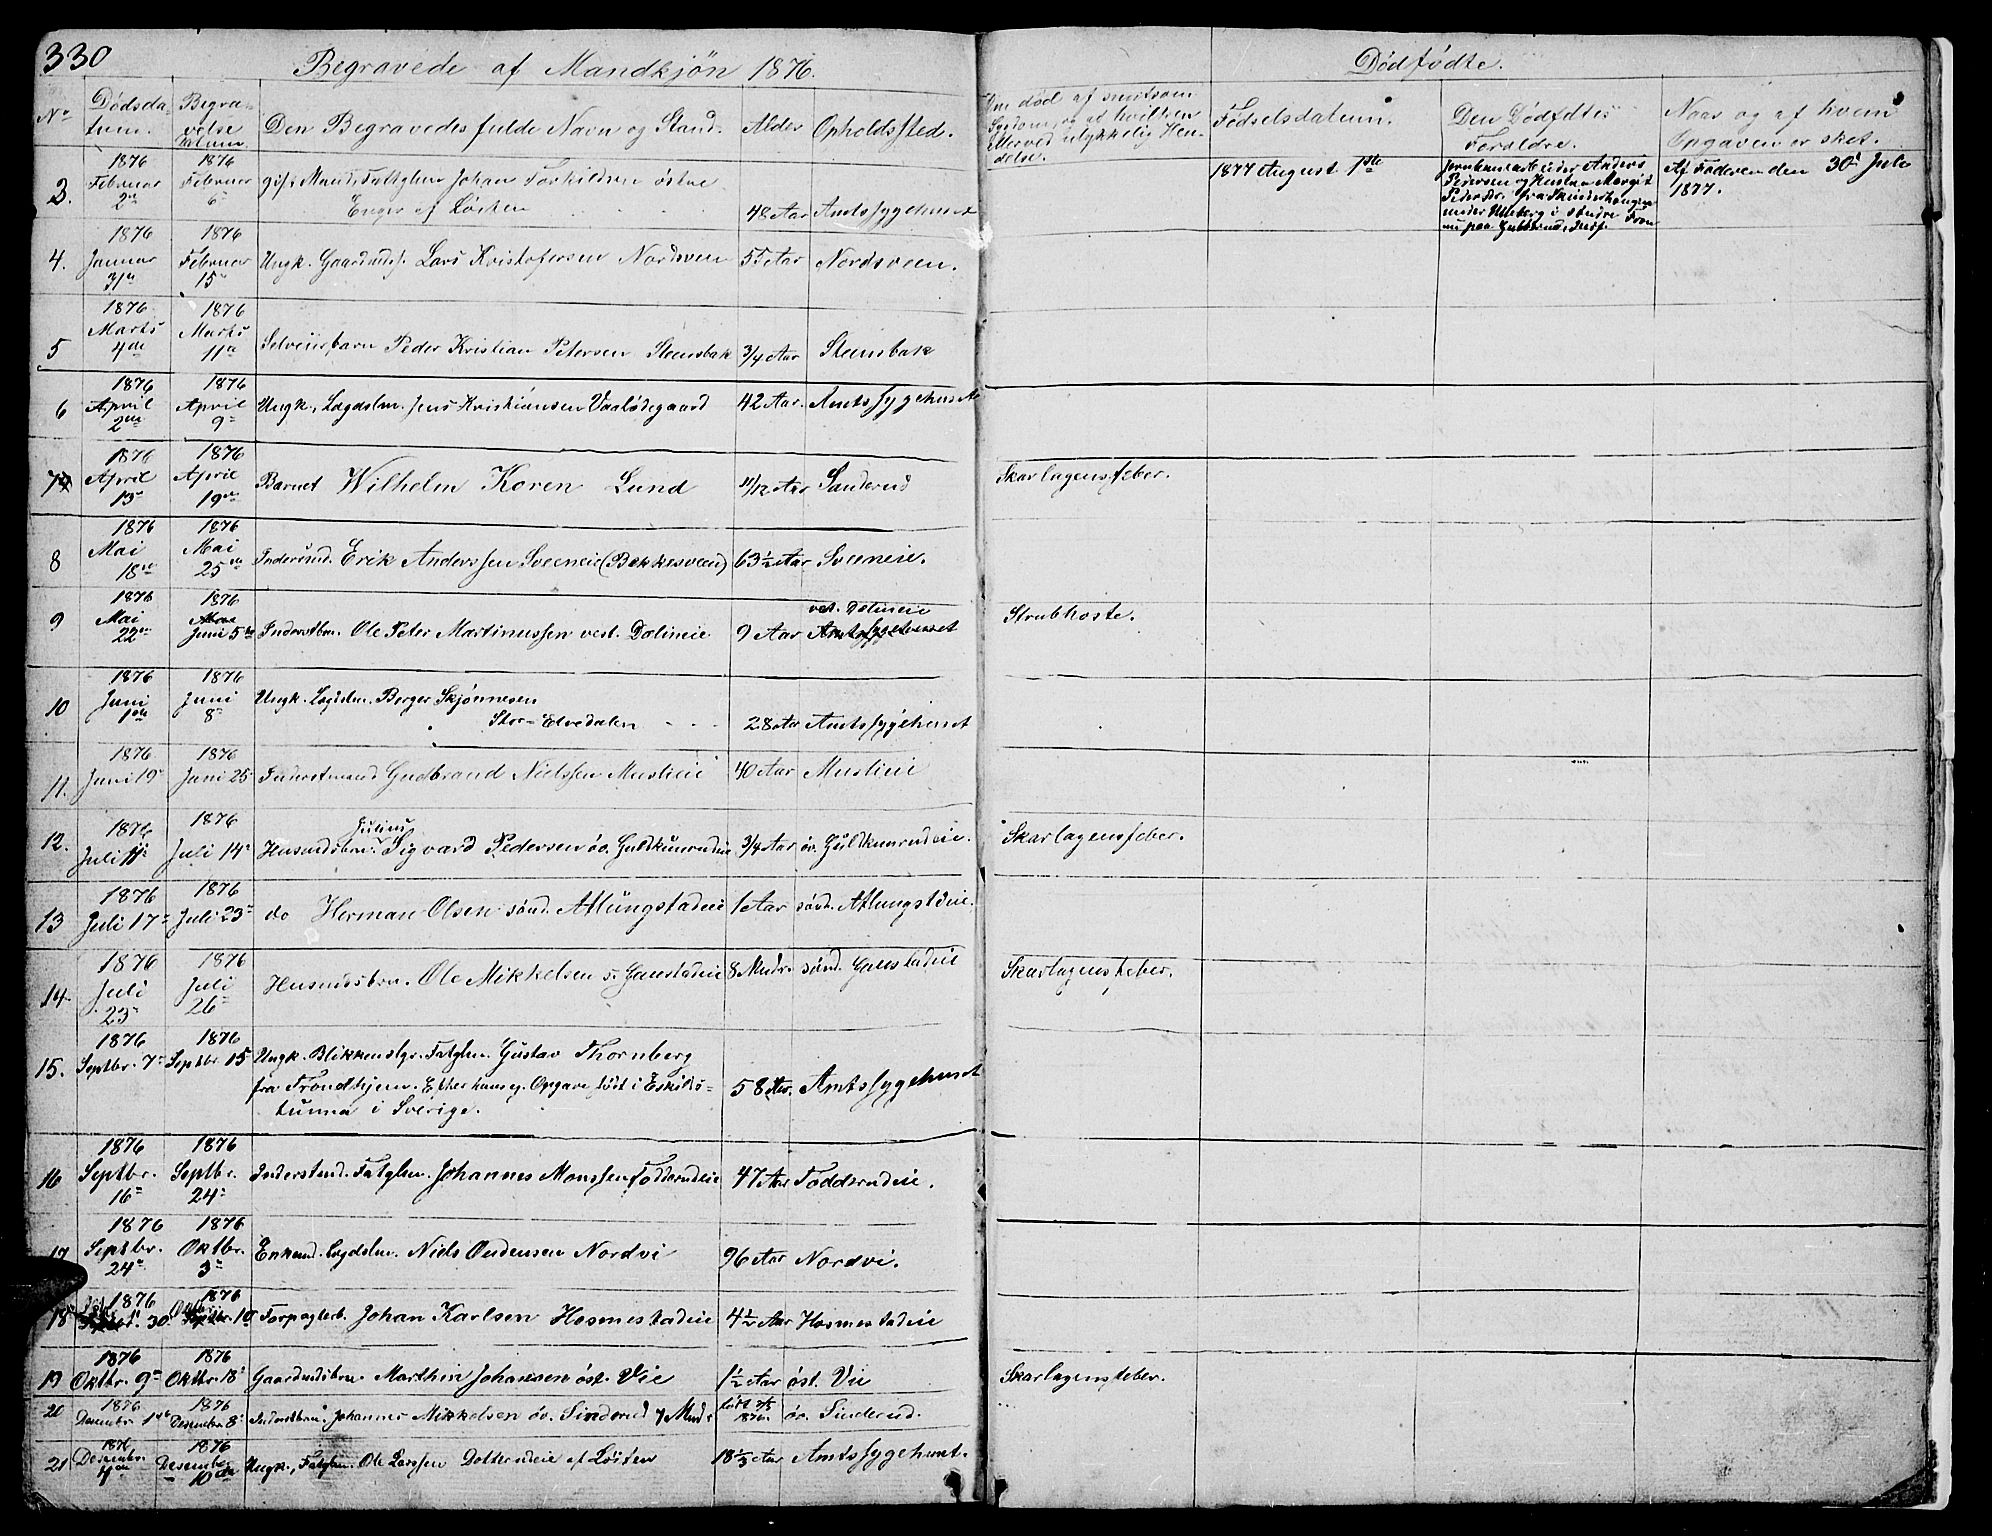 330
Begravede af Mandkjøn 1876.
Dødfødte.
No
Dødsda-
tum.
Begra-
velse
Datum
Den Begravedes fulde Navn og Stand.
Alder
Opholdssted.
Om død af smitsom
Sygdom, og af hvilken
delse.
Fødselsdatum.
Den Dødfødtes
Forældre.
Naar og af hvem
Opgaven er sket.
3. 1876 Februar 2den 1876 Februar 6te gift Mand, Fattiglem Johan Torkildsen østre
Enger af Løiten 48 Aar Amtssygehuset
1877 August 1ste
Anders
Pedersen og Hustru Margit
Pedersdr. fra Skinderhaugen
under i Studre
Af Faderen den 30 Juli
1877.
4. 1876 Januar 31te 1876 Februar 15de Ungk. Gaardmds. Lars Kristofersen Nordsveen 55 Aar Nordsveen.
5 1876 Marts 4de 1876 Marts 11te Selveierbarn Peder Kristian Petersen Steensbak 3/4 Aar Steinsbak
6 1876 April 2den 1876 April 9de Ungk., Lægdslm. Jens Kristiansen Vaalødegaard 42 Aar. Amtssygehuset
7 1876 April 13de 1876 April 19de Barnet Wilhelm Koren Lund 11/12 Aar Sanderud Skarlagensfeber.
8 1876 Mai 18de 1876 Mai 25de Inderstmd. Erik Anderssen Sveeneie (Bekkesveen) 63 1/2 Aar Sveeneie.
9 1876 Mai 22de 1876 Juni 5te Inderstbrn. Ole Peter Martinussen vest. Dølineie 9 Aar vest. Dølineie Amtssygehuset Strubhoste.
10 1876 Juni 1ste 1876 Juni 8de Ungk. Lægdslm. Berger Skjønnesen
Stor-Elvedalen 28 Aar Amtssygehuset
11. 1876 Juni 19de 1876 Juni 25de Inderstmand Gudbrand Nielssen Muslieie 40 Aar Muslieie
12. 1876 Juli 11te 1876 Juli 14de Husmdsbrn. Julius Sigvard Pedersen øv. Guldkunrudeie 3/4 Aar øv. Guldkunrudeie. Skarlagensfeber.
13 1876 Juli 17de 1876 Juli 23de do Herman Olsen sønd. Atlungstadeie 1 Aar sønd. Atlungstdeie.
14. 1876 Juli 23de 1876 Juli 26de Husmdsbrn. Ole Mikkelsen s. Gaustadeie 8 Mndr. sønd. Gaustadeie Skarlagensfeber.
15. 1876 Septbr. 7de 1876 Septbr. 15 Ungk. Blikkenslgr. Fatglm. Gustav Thornberg
fra Trondhjem. Efter hans eg. Opgave født i Eskils-
tunna i Sverige. 58 Aar. Amtssygehuset
16 1876 Septbr. 16de 1876 Septbr. 24de Inderstmd. Fatglm. Johannes Monssen Todderudeie 47 Aar Todderudeie.
17 1876 Septbr. 24de 1876 Oktbr. 3de Enkemd. Lægdslm. Niels Oudensen Nordvi 96 Aar Nordvi.
18 1876 30 1876 Oktbr. 10 Forpagterb. Johan Karlsen Hosmestadeie 4 1/2 Aar Hosmestadeie
19 1876 Oktbr. 9de 1876 Oktbr. 18de Gaardmdsbrn. Marthin Johansen øst. Vie 1 1/2 Aar øst. Vie Skarlagensfeber.
20 1876 Decembr 1ste 1876 Desember 8de Inderstbrn. Johannes Mikkelsen øv. Sinderud 7 Mnd. født 1876. øv. Sinderud.
21 1876 Desembr. 4de 1876 Desember 10de Ungk., Fatglm. Ole Larssen Dotterudeie af Løiten 18 1/3 Aar Amtssygehuset.